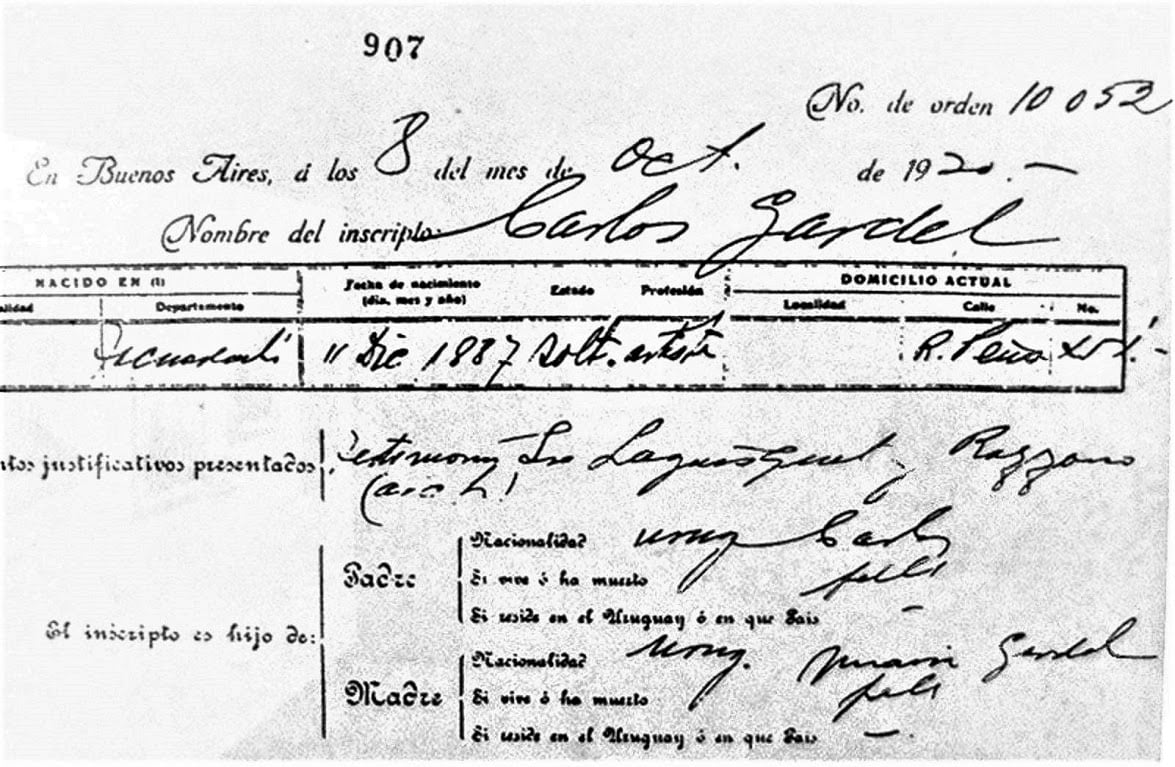 907
No. de orden 10052
En Buenos Aires, á los 8 del mes de Oct. de 1920.-
Nombre del inscripto: Carlos Gardel
NACIDO EN (1) Fecha de nacimiento (día, mes y año) Estado Profesión DOMICILIO ACTUAL
alidad Departamento Localidad Calle No.
11 Dic 1887 solt. artista R. Peña
ntos justificativos presentados Razzano
El inscripto es hijo de:
Padre
Nacionalidad urug Carlos
Si vive ó ha muerto
Si reside en el Uruguay ó en que Pais -
Madre
Nacionalidad urug. Maria Gardel
Si vive ó ha muerto
Si reside en el Uruguay ó en que Pais -